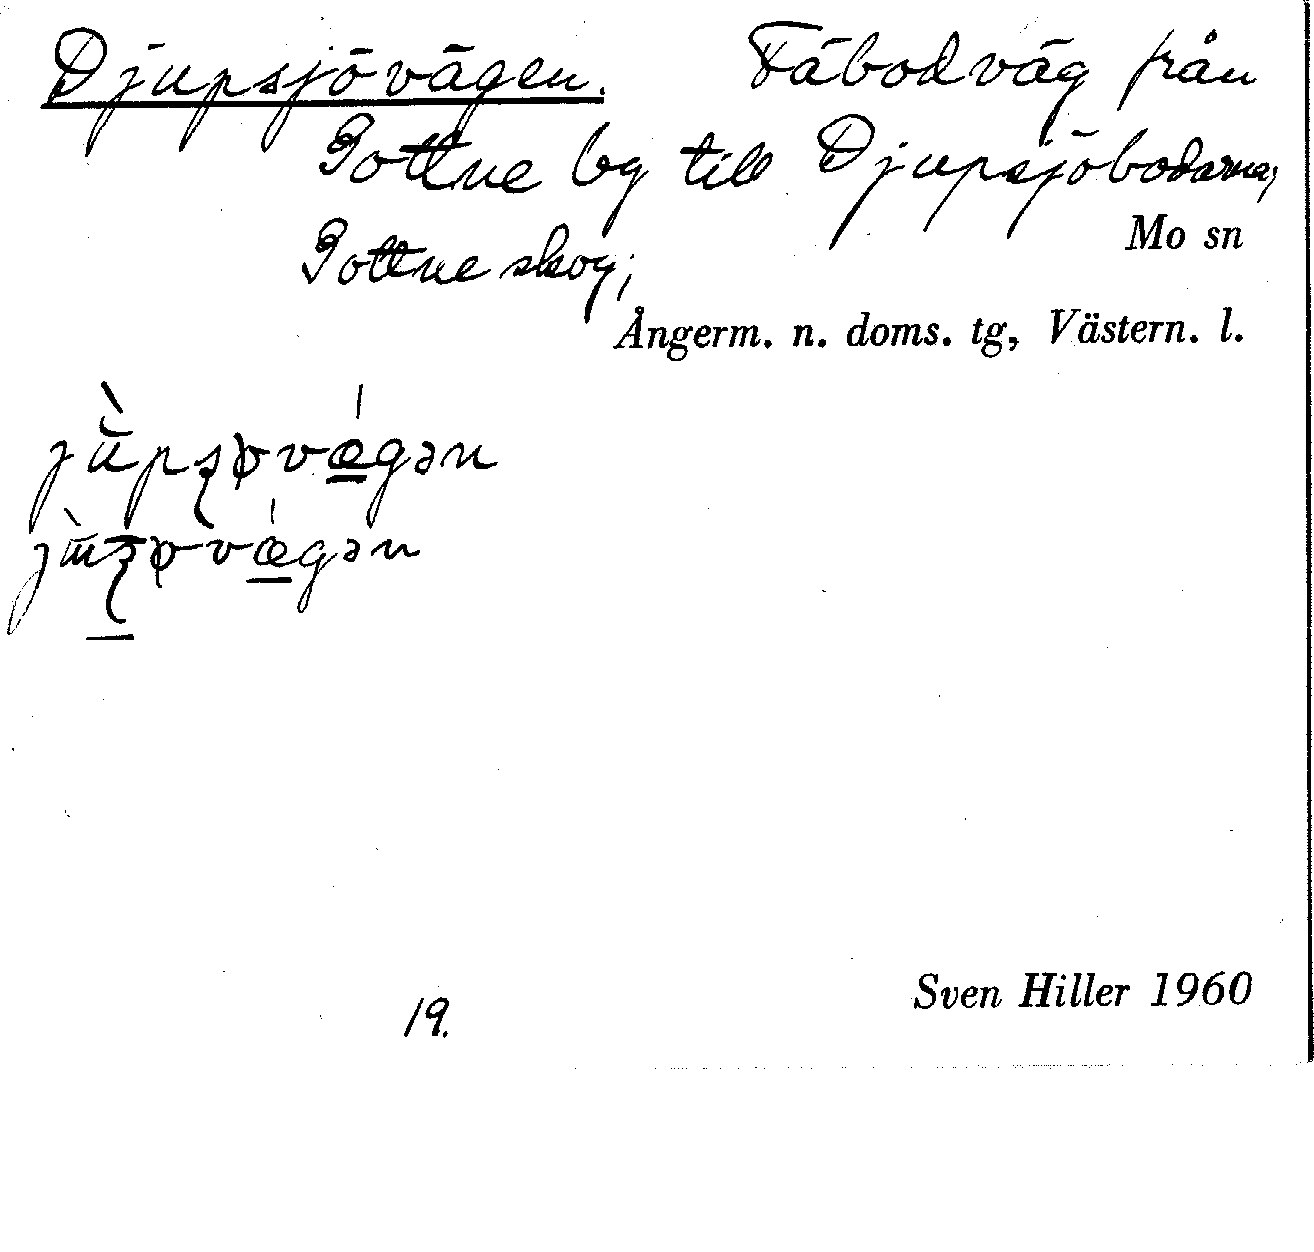 Djupsjövägen. Fäbodväg från
Gottne by till Djupsjöbodarna,
Mo sn
Gottne skog;
Ångerm. n. doms. tg, Västern. l.
19.
Sven Hiller 1960